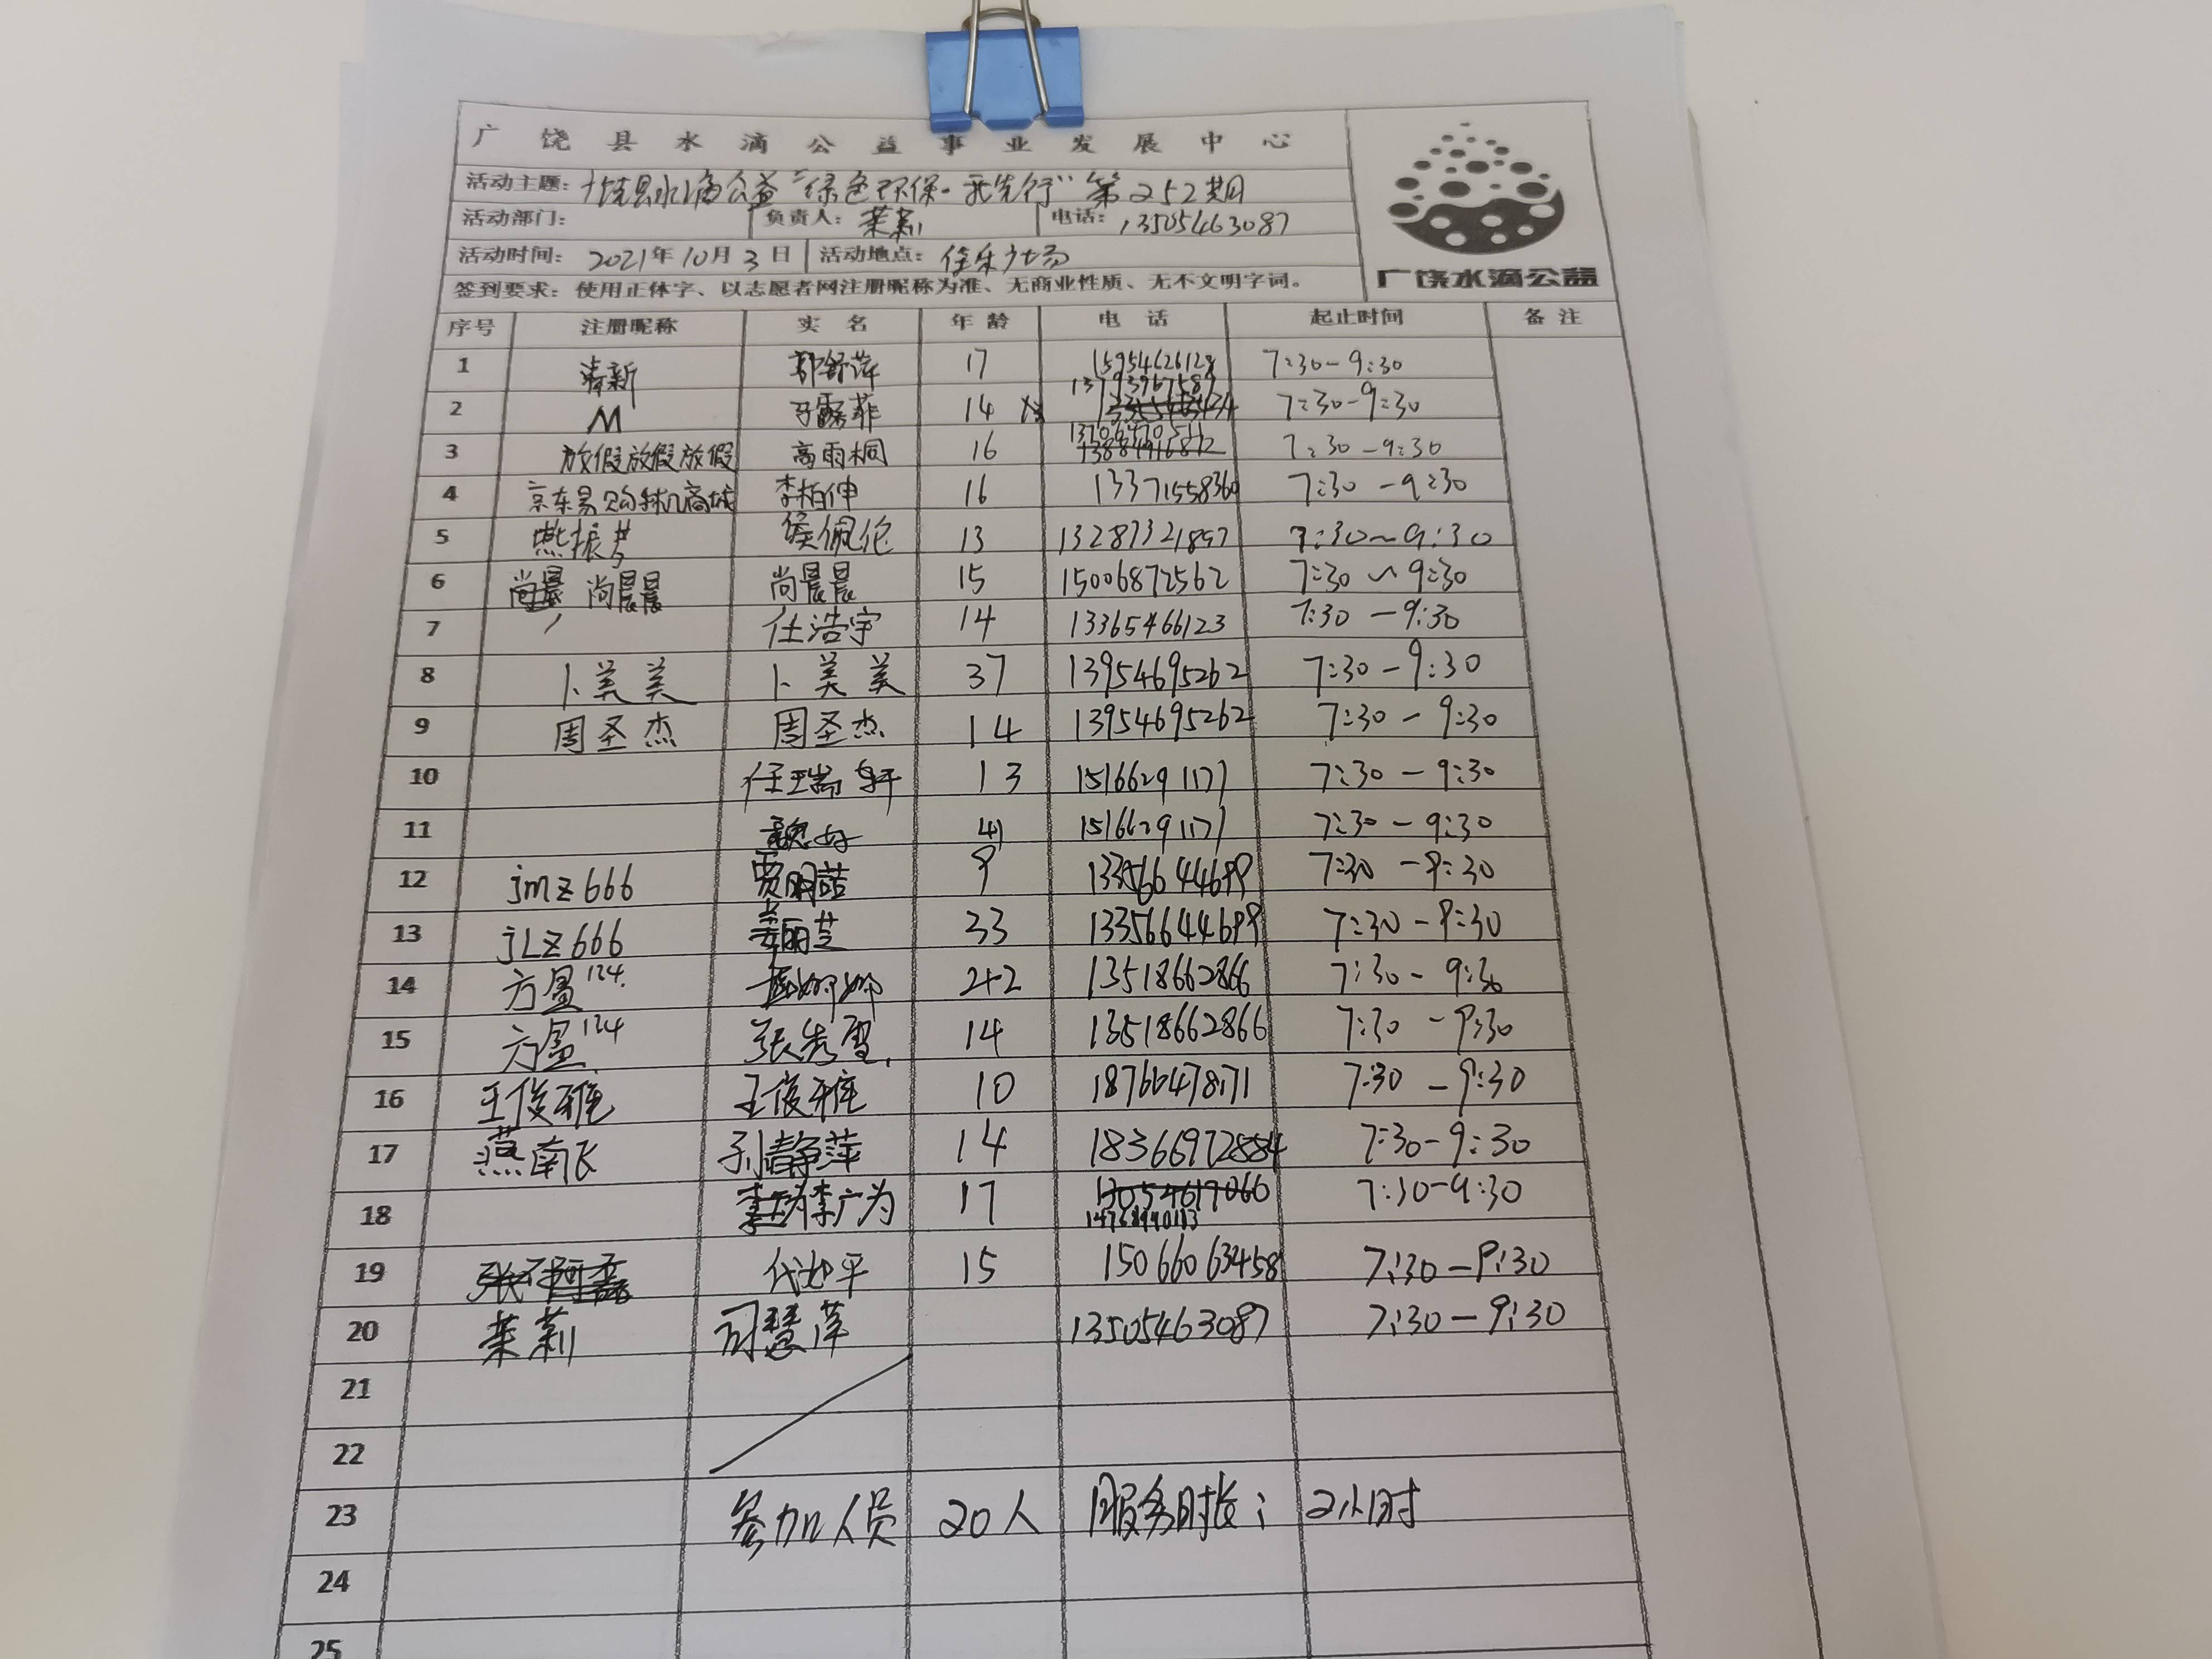 广饶县水滴公益事业发展中心
活动主题：广饶县水滴公益"绿色环保·我先行"第252期
活动部门： 负责人：茉莉 电话：13505463087
活动时间：2021年10月3日 活动地点：佳乐广场
广饶水滴公益
签到要求：使用正体字、以志愿者网注册昵称为准、无商业性质、无不文明字词。
序号 注册昵称 实名 年龄 电话 起止时间 备注
1 清新 郭舒萍 17 15954626128 7:30-9:30
2 M 14 13793967587 7:30-9:30
3 放假放假放假 高雨桐 16 13706470511 7:30-9:30
4 京东易购手机商城 李柏伸 16 13371558360 7:30-9:30
5 燕振芳 侯佩伦 13 13287321897 7:30~9:30
6 尚晨晨 尚晨晨 15 15006872562 7:30~9:30
7 任浩宇 14 13365466123 7:30-9:30
8 卜美美 卜美美 37 13954695262 7:30-9:30
9 周圣杰 周圣杰 14 13954695262 7:30-9:30
10 任瑞轩 13 15166291171 7:30-9:30
11 41 15166291171 7:30-9:30
12 jmz666 贾明喆 9 13356644699 7:30-9:30
13 jLz666 姜丽芝 33 13356644699 7:30-9:30
14 方盈124 13518662866 7:30-9:30
15 方盈124 张先雪 14 13518662866 7:30-9:30
16 王俊雅 王俊雅 10 18766478171 7:30-9:30
17 燕南飞 孙静萍 14 18366972884 7:30-9:30
18 李广为 17 7:30-9:30
19 代如平 15 15066063458 7:30-9:30
20 茉莉 司慧萍 13505463087 7:30-9:30
21
22
23 参加人员 20人 服务时长： 2小时
24
25